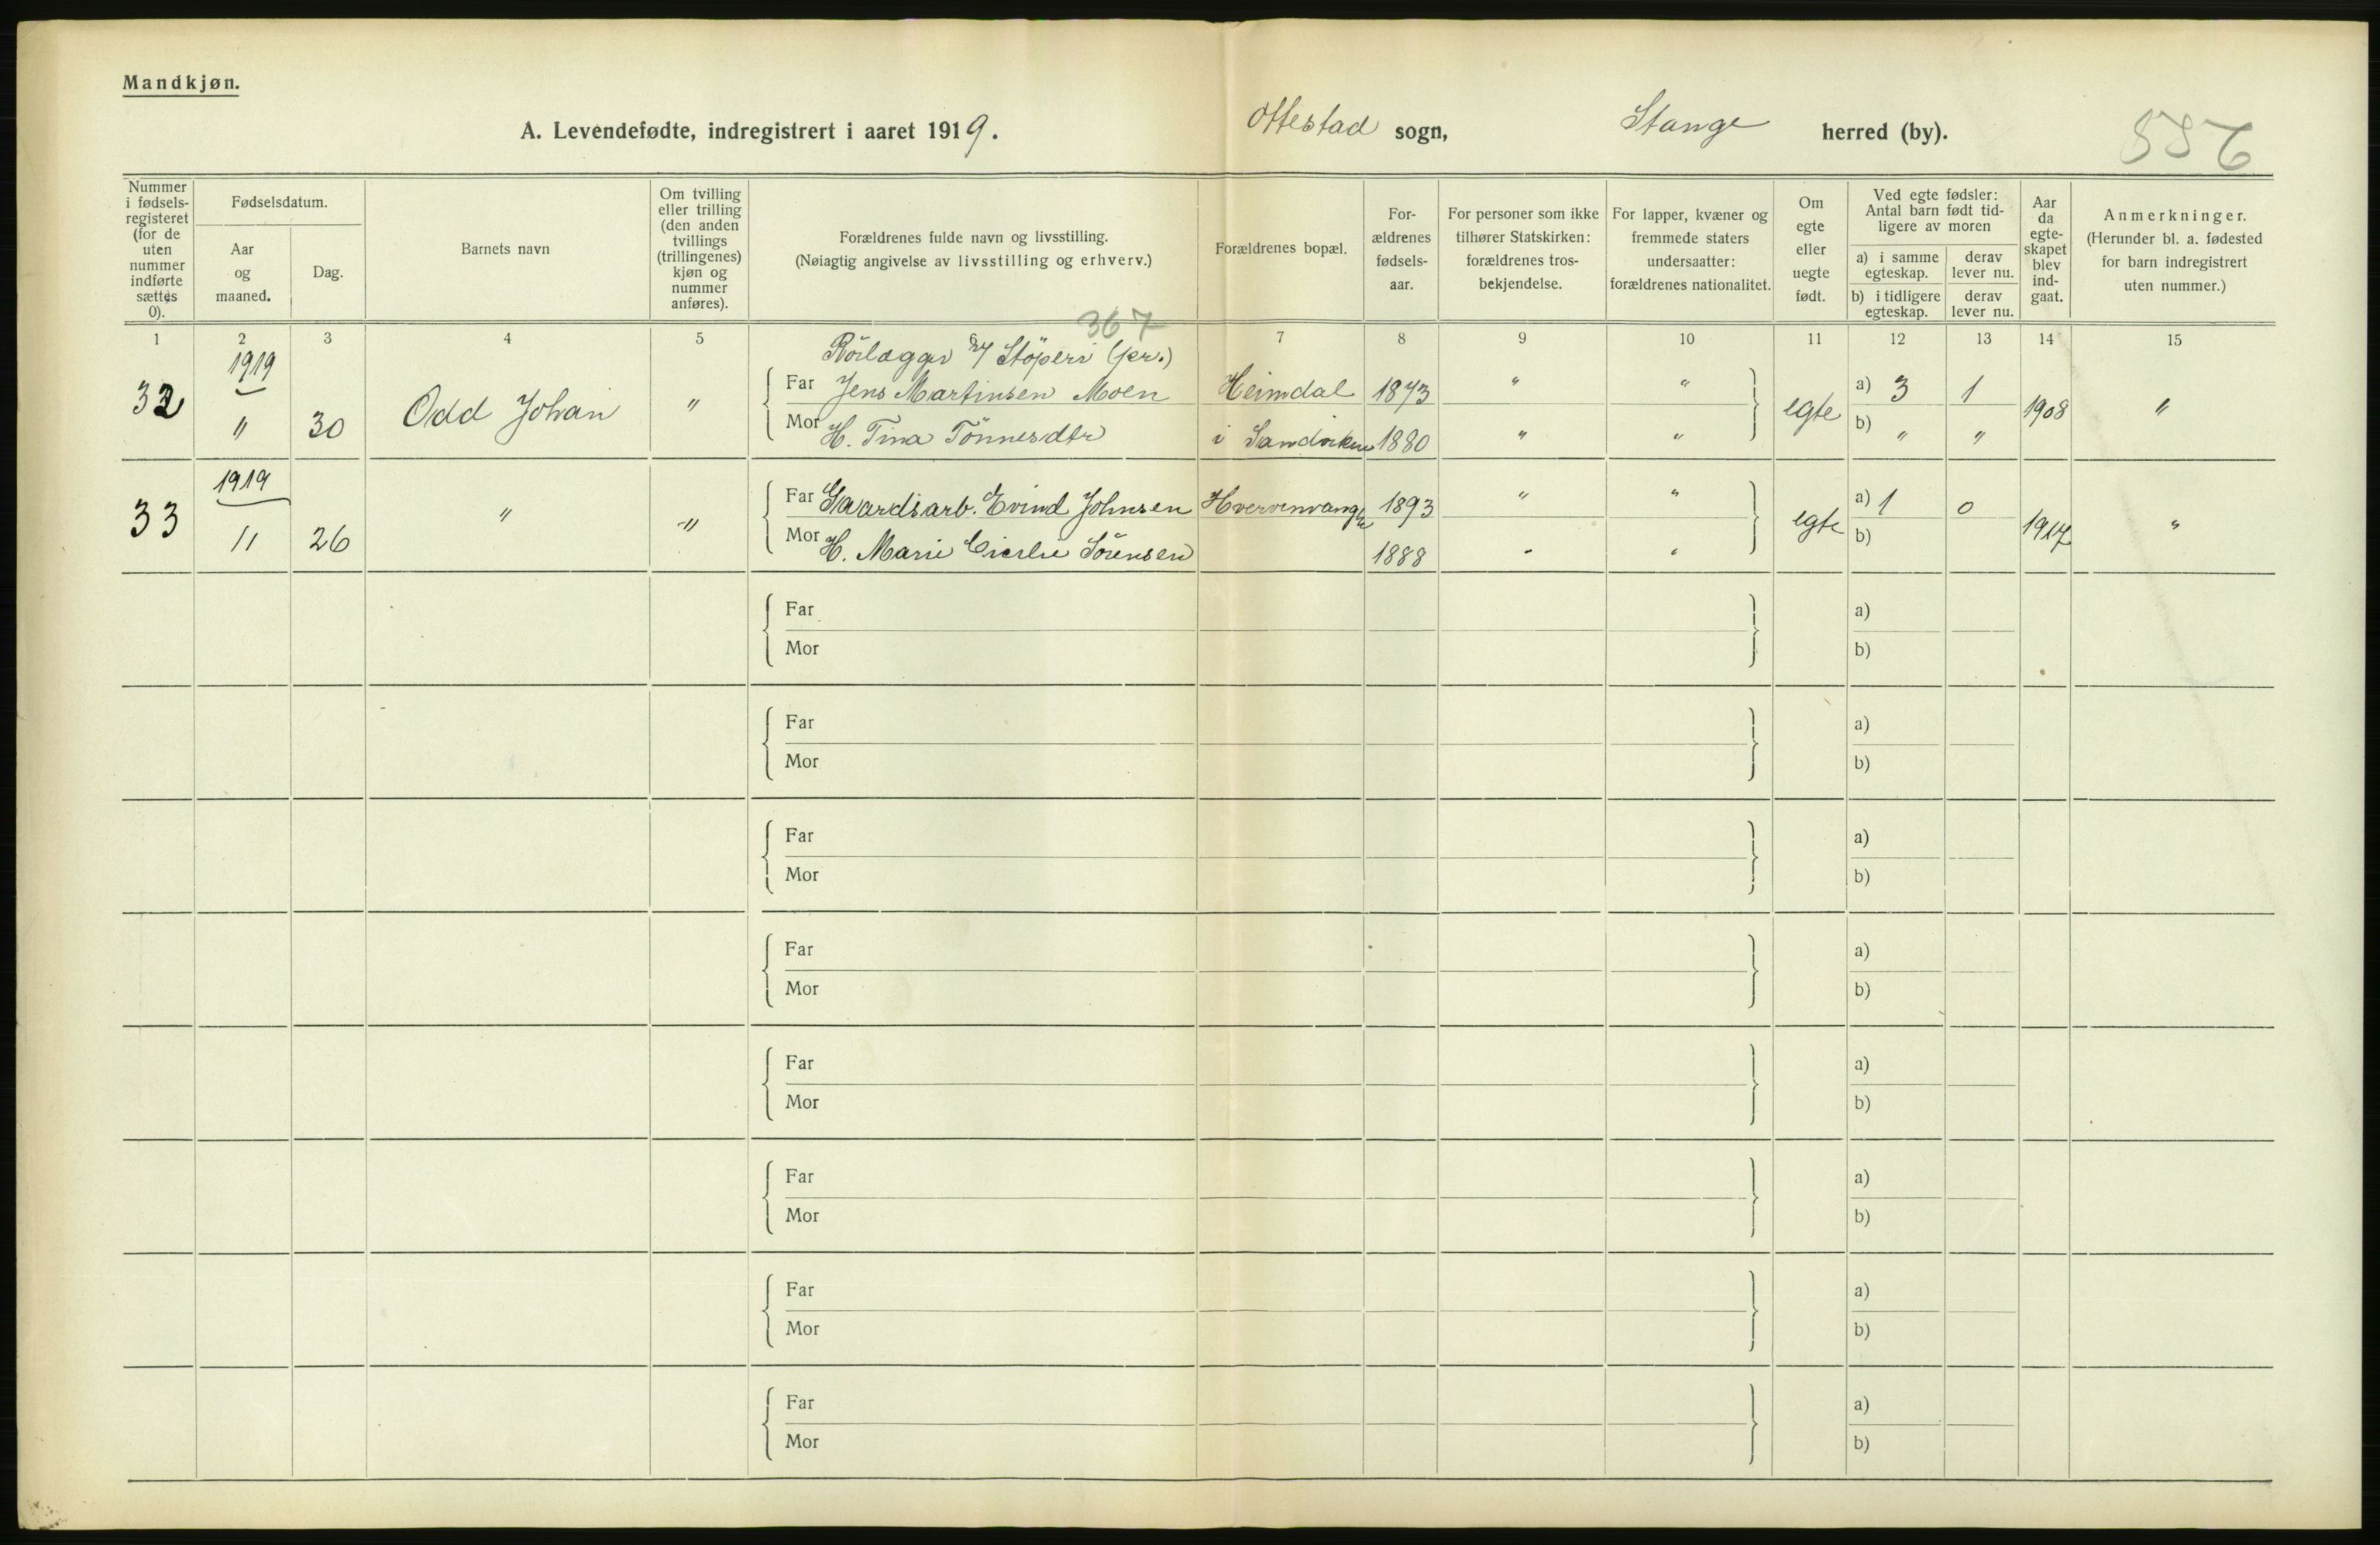 Mandkjøn.
A. Levendefødte, indregistrert i aaret 1919. Ottestad sogn, Stange herred (by). 586
Nummer i fødselsregisteret (for de uten nummer indførte sættes 0).
Fødselsdatum.
Aar og maaned.
Dag.
Barnets navn
Om tvilling eller trilling (den anden tvillings (trillingenes) kjøn og nummer anføres).
Forældrenes fulde navn og livsstilling.
(Nøiagtig angivelse av livsstilling og erhverv.)
Forældrenes bopæl.
Forældrenes fødselsaar.
For personer som ikke tilhører Statskirken: forældrenes trosbekjendelse.
For lapper, kvæner og fremmede staters undersaatter: forældrenes nationalitet.
Om egte eller uegte født.
Ved egte fødsler: Antal barn født tidligere av moren
a) i samme egteskap. derav lever nu.
b) i tidligere egteskap. derav lever nu.
Aar da egteskapet blev indgaat.
Anmerkninger.
(Herunder bl. a. fødested for barn indregistrert uten nummer.)
367
1 2 3 4 5 6 7 8 9 10 11 12 13 14 15
1919 Rörlægger Stöperi
32 " 30 Odd Johan "
Far Jens Martinsen Moen Heimdal 1873 " " egte a) 3 1 1908 "
Mor H. Tina Tönnesdtr i Sandviken 1880 " " b) " "
1919
33 11 26 " "
Far Gaardsarb. Evind Johnsen 1893 " " egte a) 1 0 1917 "
Mor H. Marie Sörensen 1888 " " b)
Far a)
Mor b)
Far a)
Mor b)
Far a)
Mor b)
Far a)
Mor b)
Far a)
Mor b)
Far a)
Mor b)
Far a)
Mor b)
Far a)
Mor b)